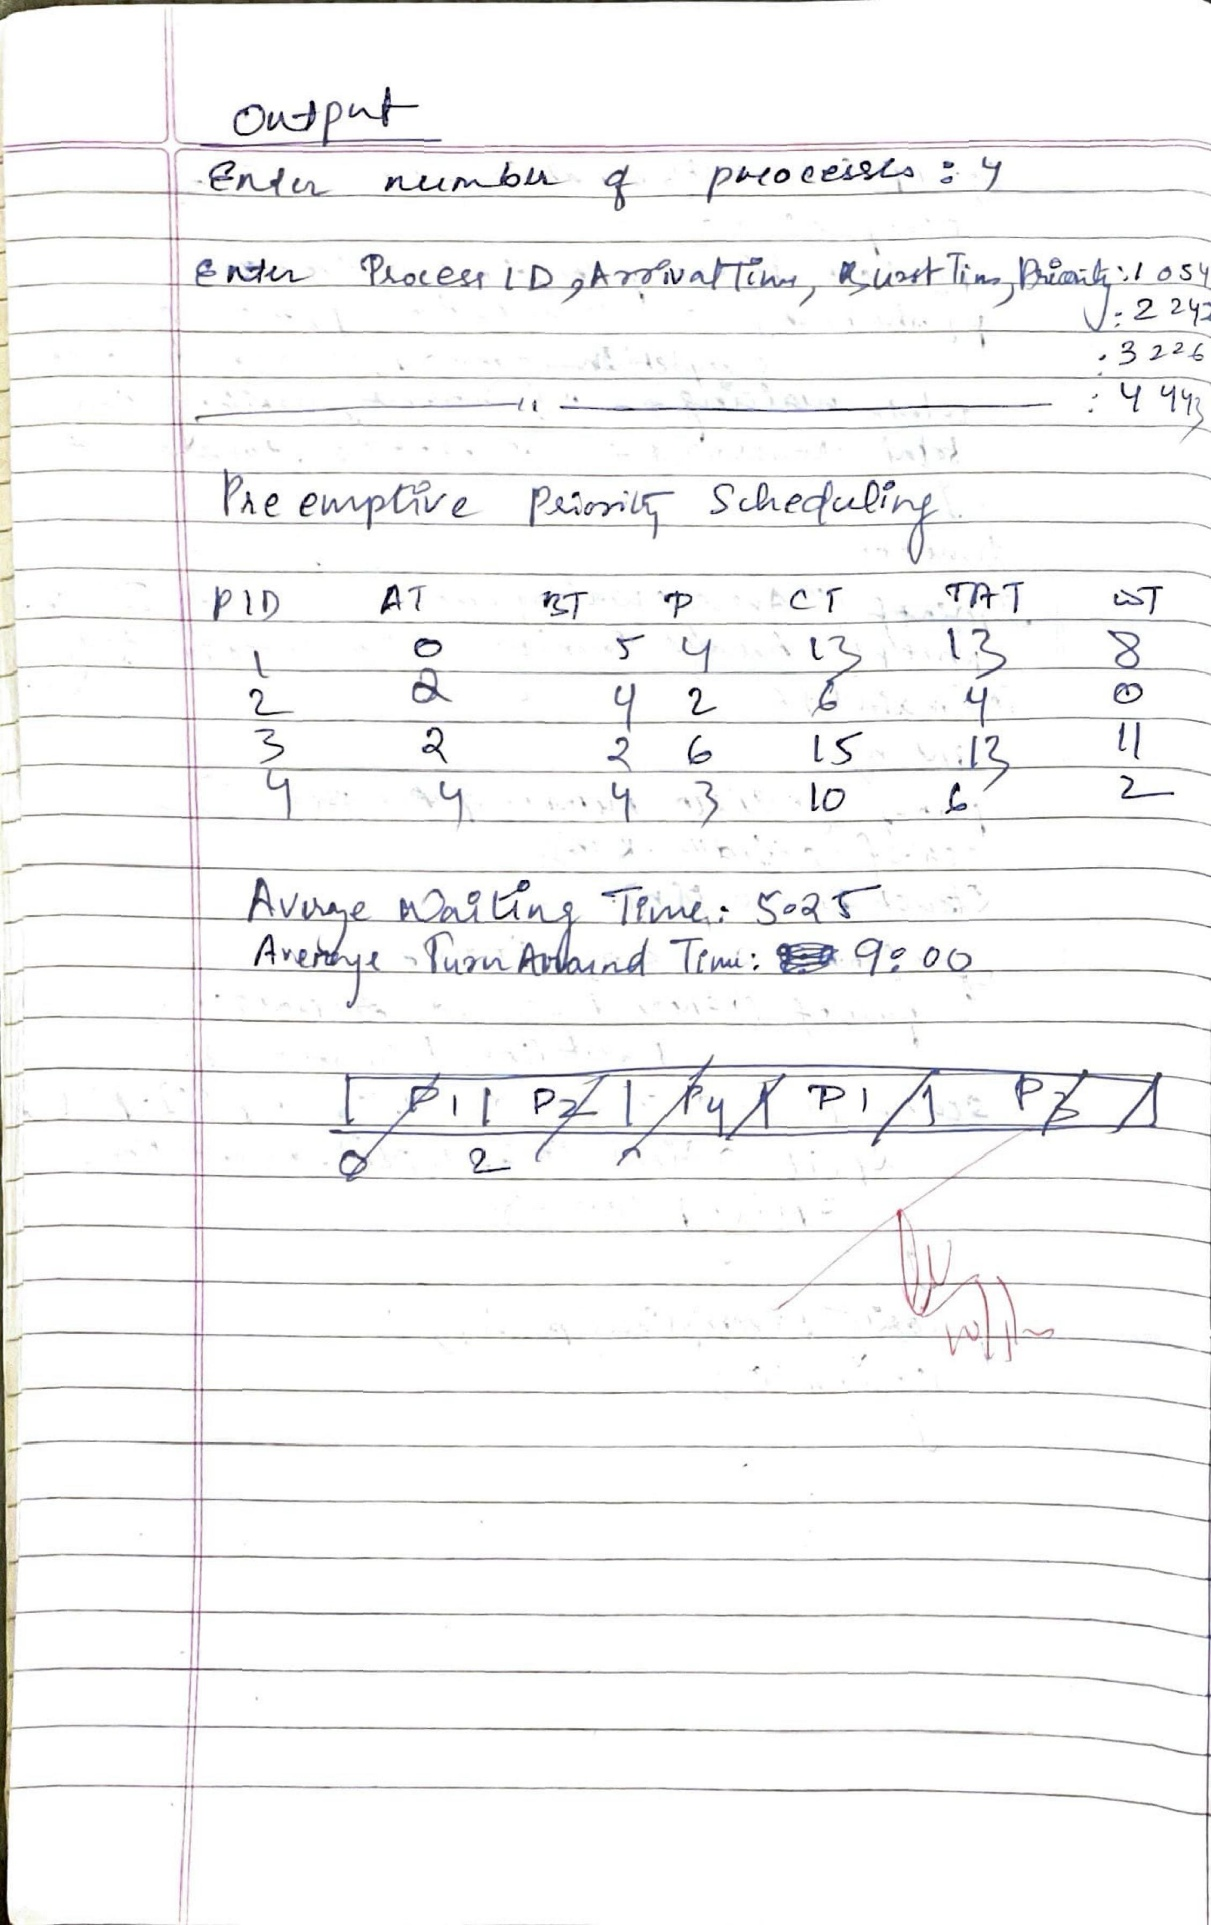 Output
Enter number of processes : 4
Enter Process ID, Arrival Time, Burst Time, Priority : 1 0 5 4
: 2 2 4 2
: 3 2 2 6
—— 11 —— : 4 4 4 3
Preemptive Priority Scheduling
PID AT BT P CT TAT WT
1 0 5 4 13 13 8
2 2 4 2 6 4 0
3 2 2 6 15 13 11
4 4 4 3 10 6 2
Average Waiting Time: 5.25
Average Turn Around Time: 9:00
P1 P2 P4 P1 P3
0 2